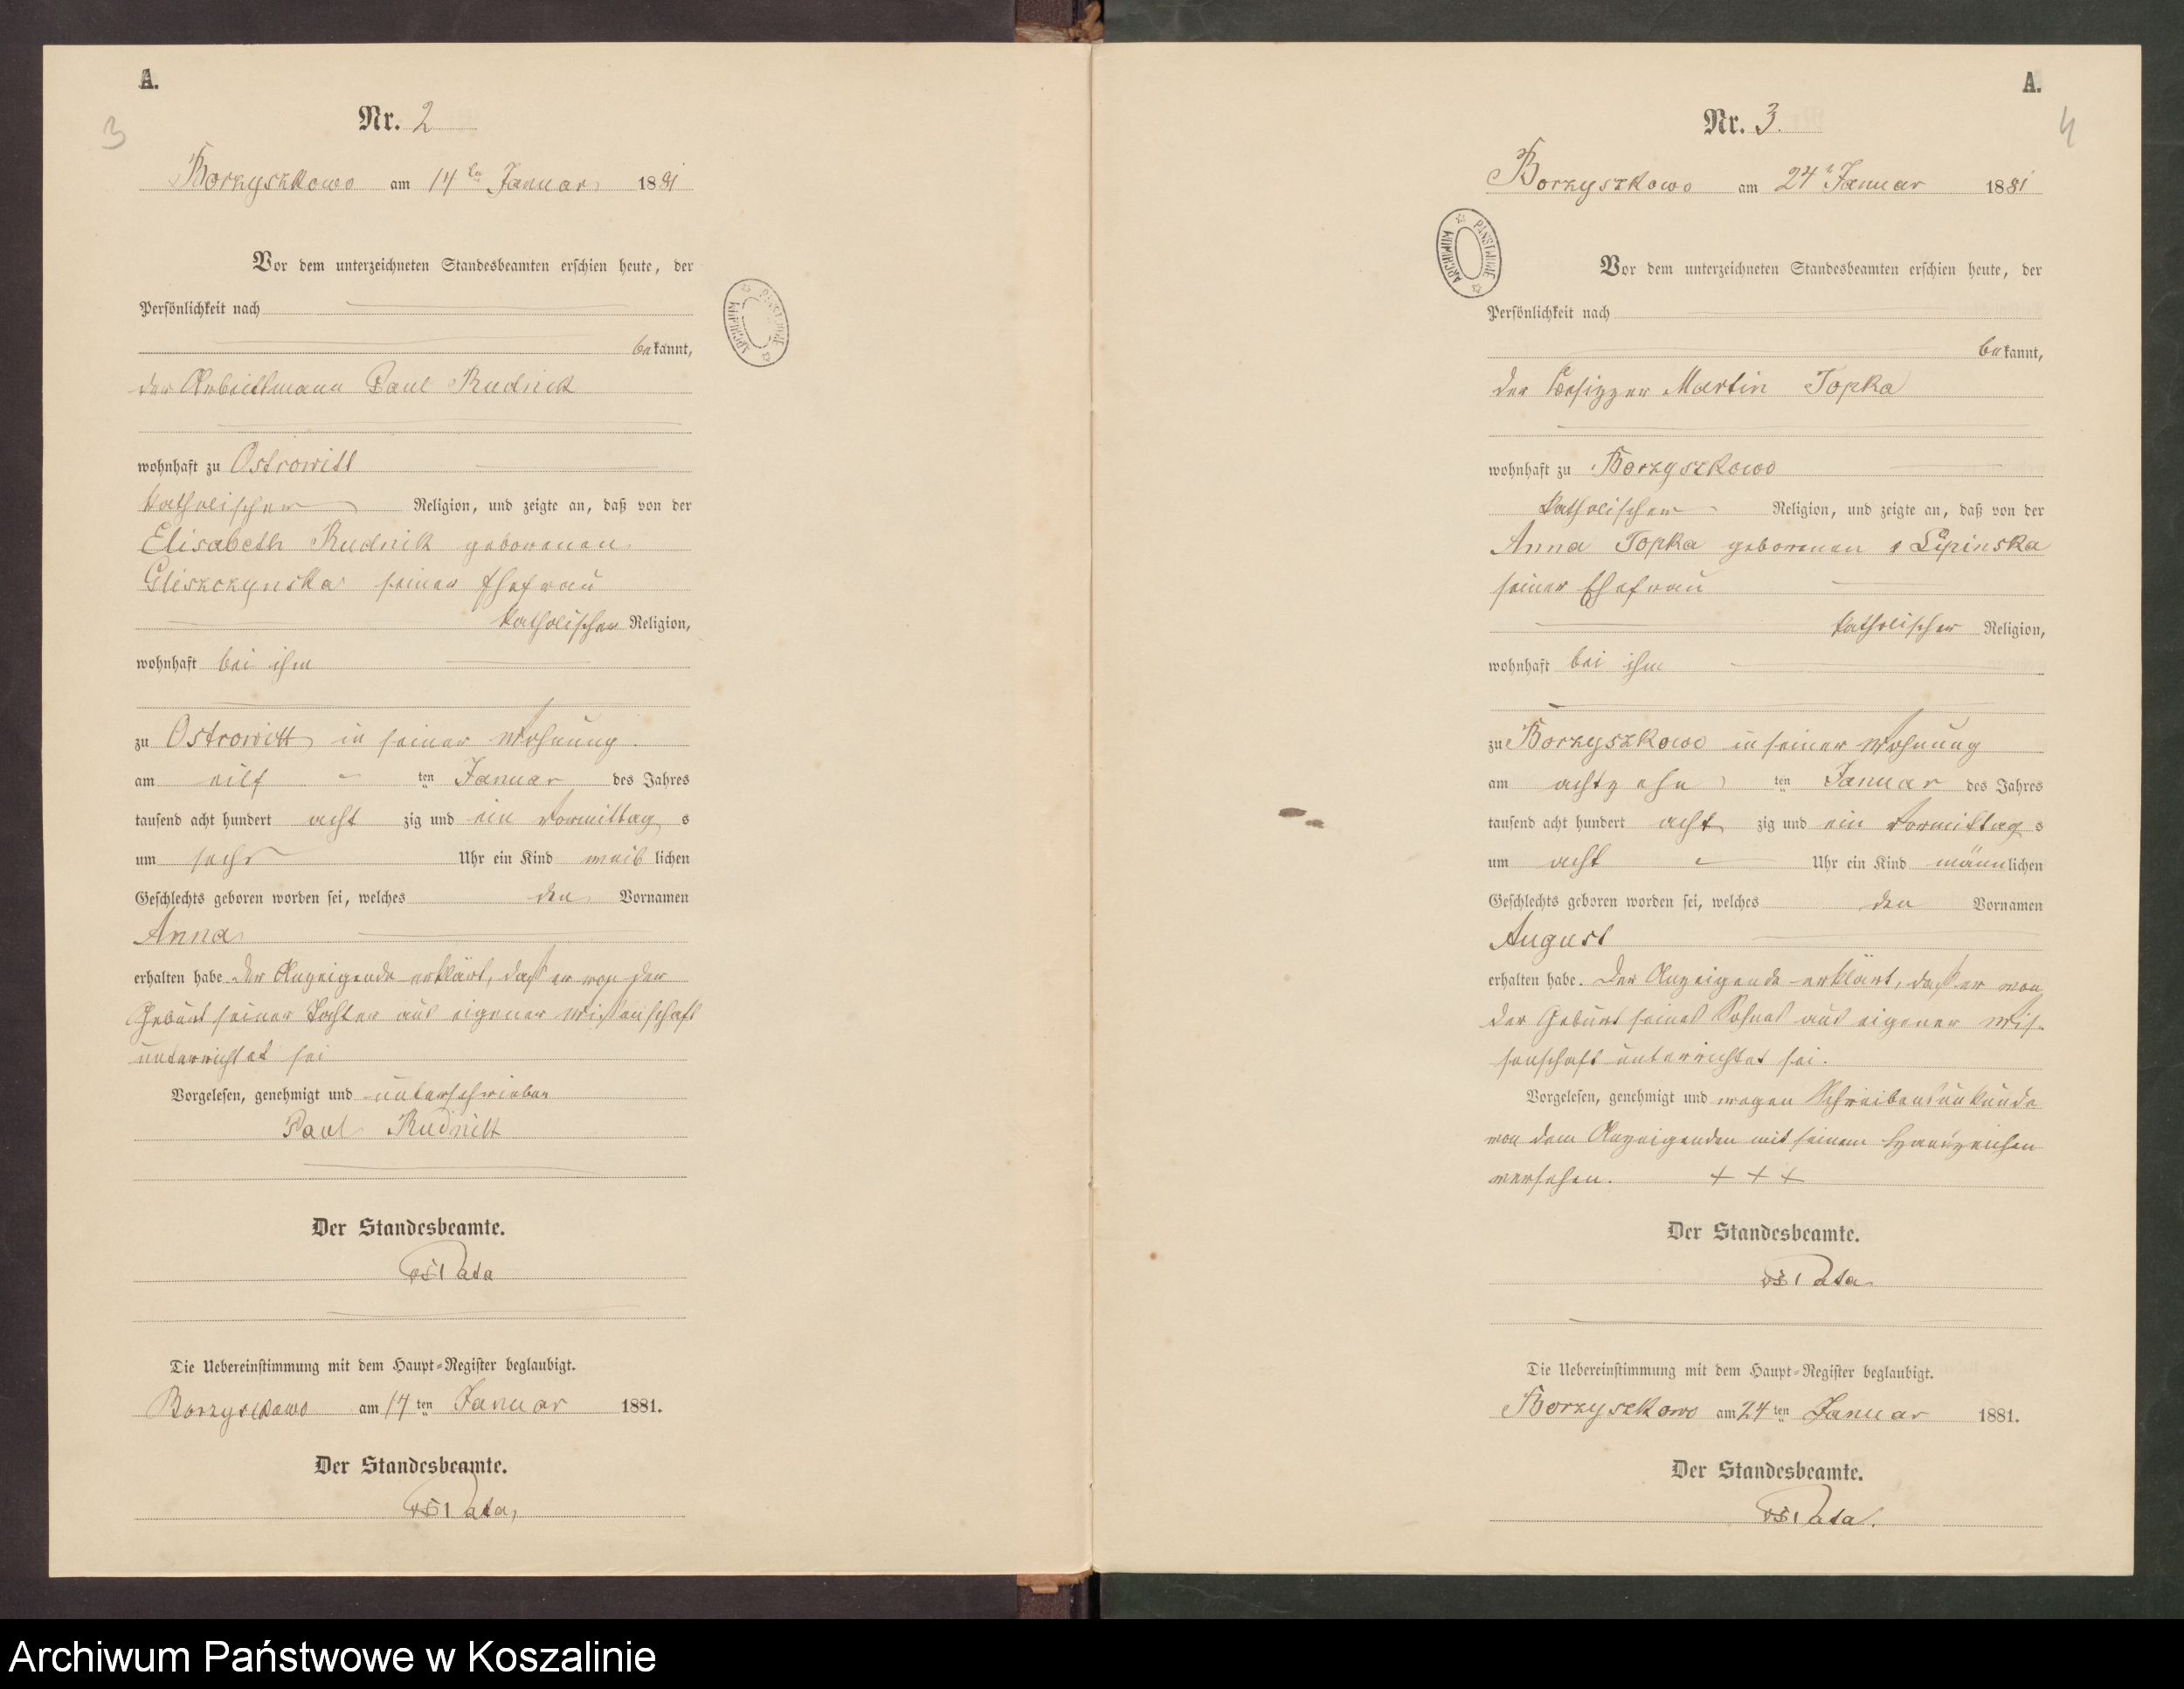 A.
3
Nr. 2
Borzyszkowo am 14ten Januar 1881
Vor dem unterzeichneten Standesbeamten erschien heute, der
Persönlichkeit nach
bekannt,
der Arbeitsmann Paul Rudnick
wohnhaft zu Ostrowitt
katholischer Religion, und zeigte an, daß von der
Elisabeth Rudnik geborenen
Gliszczynska seiner Ehefrau
katholischer Religion,
wohnhaft bei ihm
zu Ostrowitt in seiner Wohnung
am eilf ten Januar des Jahres
tausend acht hundert acht zig und ein Vormittag s
um sechs Uhr ein Kind weib lichen
Geschlechts geboren worden sei, welches den Vornamen
Anna
erhalten habe. Der Anzeigende erklärt, daß er von der
Geburt seiner Tochter aus eigener Wissenschaft
unterrichtet sei
Vorgelesen, genehmigt und unterschrieben
Paul Rudnick
Der Standesbeamte.
Die Uebereinstimmung mit dem Haupt-Register beglaubigt.
Borzyszkowo am 14 ten Januar 1881.
Der Standesbeamte.
ARCHIWUM PAŃSTWOWE
A.
4
Nr. 3.
Borzyszkowo am 24 Januar 1881
Vor dem unterzeichneten Standesbeamten erschien heute, der
Persönlichkeit nach
bekannt,
der Besitzer Martin Topka
wohnhaft zu Borzyszkowo
katholischer Religion, und zeigte an, daß von der
Anna Topka geborenen Lipinska
seiner Ehefrau
katholischer Religion,
wohnhaft bei ihm
zu Borzyszkowo in seiner Wohnung
am achtzehn ten Januar des Jahres
tausend acht hundert acht zig und ein Vormittag s
um acht Uhr ein Kind männlichen
Geschlechts geboren worden sei, welches den Vornamen
August
erhalten habe. Der Anzeigende erklärt, daß er von
der Geburt seines Sohnes aus eigener Wis-
senschaft unterrichtet sei.
Vorgelesen, genehmigt und wegen Schreibensunkunde
von dem Anzeigenden mit seinem Handzeichen
versehen. + + +
Der Standesbeamte.
Die Uebereinstimmung mit dem Haupt-Register beglaubigt.
Borzyszkowo am 24 ten Januar 1881.
Der Standesbeamte.
ARCHIWUM PAŃSTWOWE
Archiwum Państwowe w Koszalinie